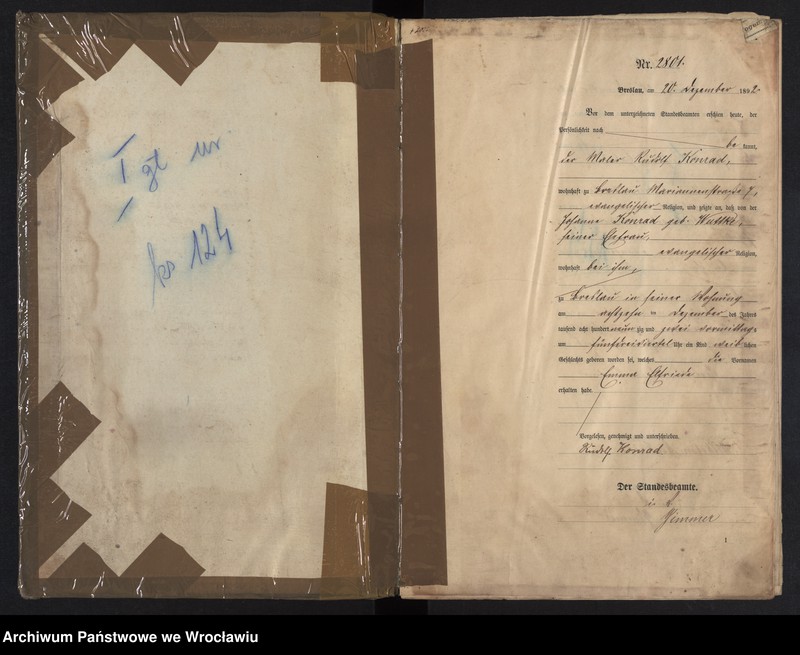 I gt ur
ks 124
Nr. 2801.
Breslau, am 20. Dezember 1892.
Vor dem unterzeichneten Standesbeamten erschien heute, der
Persönlichkeit nach
be kannt,
der Maler Rudolf Konrad,
wohnhaft zu Breslau Mariannenstrasse 7,
evangelischer Religion, und zeigte an, daß von der
Johanna Konrad geb. Wuttke,
seiner Ehefrau,
evangelischer Religion,
wohnhaft bei ihm,
zu Breslau in seiner Wohnung
am achtzehn ten Dezember des Jahres
tausend acht hundert neun zig und zwei vormittags
um fünfdreiviertel Uhr ein Kind weib lichen
Geschlechts geboren worden sei, welches die Vornamen
Emma Elfriede
erhalten habe.
Vorgelesen, genehmigt und unterschrieben.
Rudolf Konrad
Der Standesbeamte.
1
Archiwum Państwowe we Wrocławiu